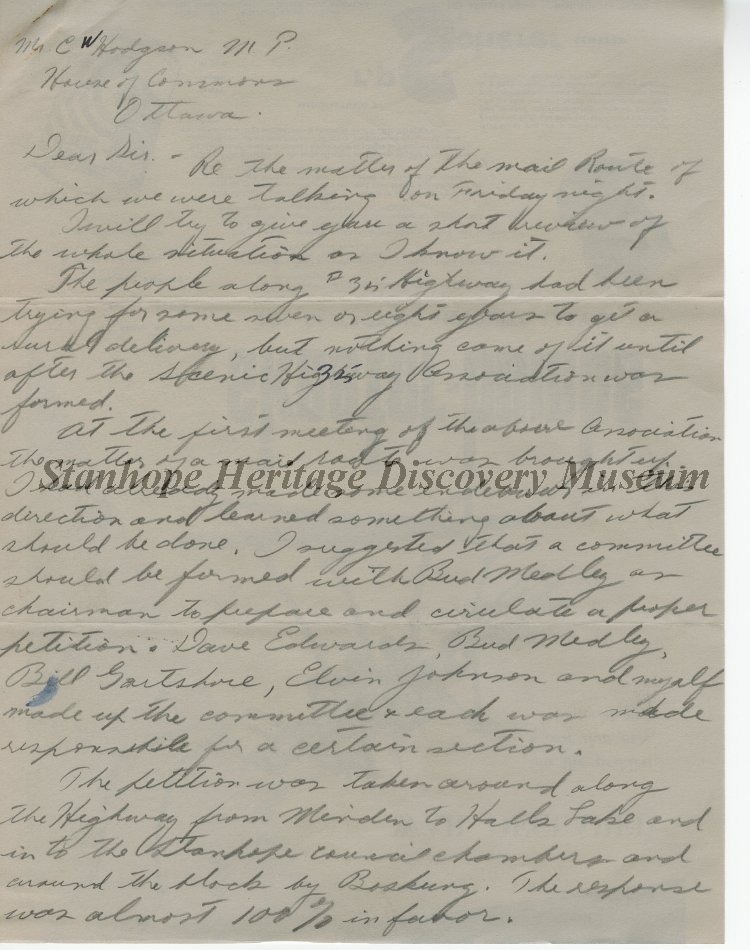 Mr. C W Hodgson M. P.
House of Commons
Ottawa.
Dear Sir. - Re the matter of the mail Route of
which we were talking on Friday night.
I will try to give you a short review of
the whole situation as I know it.
The people along # 35 Highway had been
trying for some seven or eight years to get a
rural delivery, but nothing came of it until
after the Scenic Highway 35 Association was
formed.
At the first meeting of the above Association
the matter of a mail route was brought up.
Stanhope Heritage Discovery Museum
I had already made some in this
direction and learned something about what
should be done. I suggested that a committee
should be formed with Bud Medley as
chairman to prepare and circulate a proper
petition. Dave Edwards, Bud Medley,
Bill Gartshore, Elvin Johnson and myself
made up the committee & each was made
responsible for a certain section.
The petition was taken around along
the Highway from Minden to Halls Lake and
in to the Stanhope council chambers and
around the block by Boskung. The response
was almost 100% in favor.